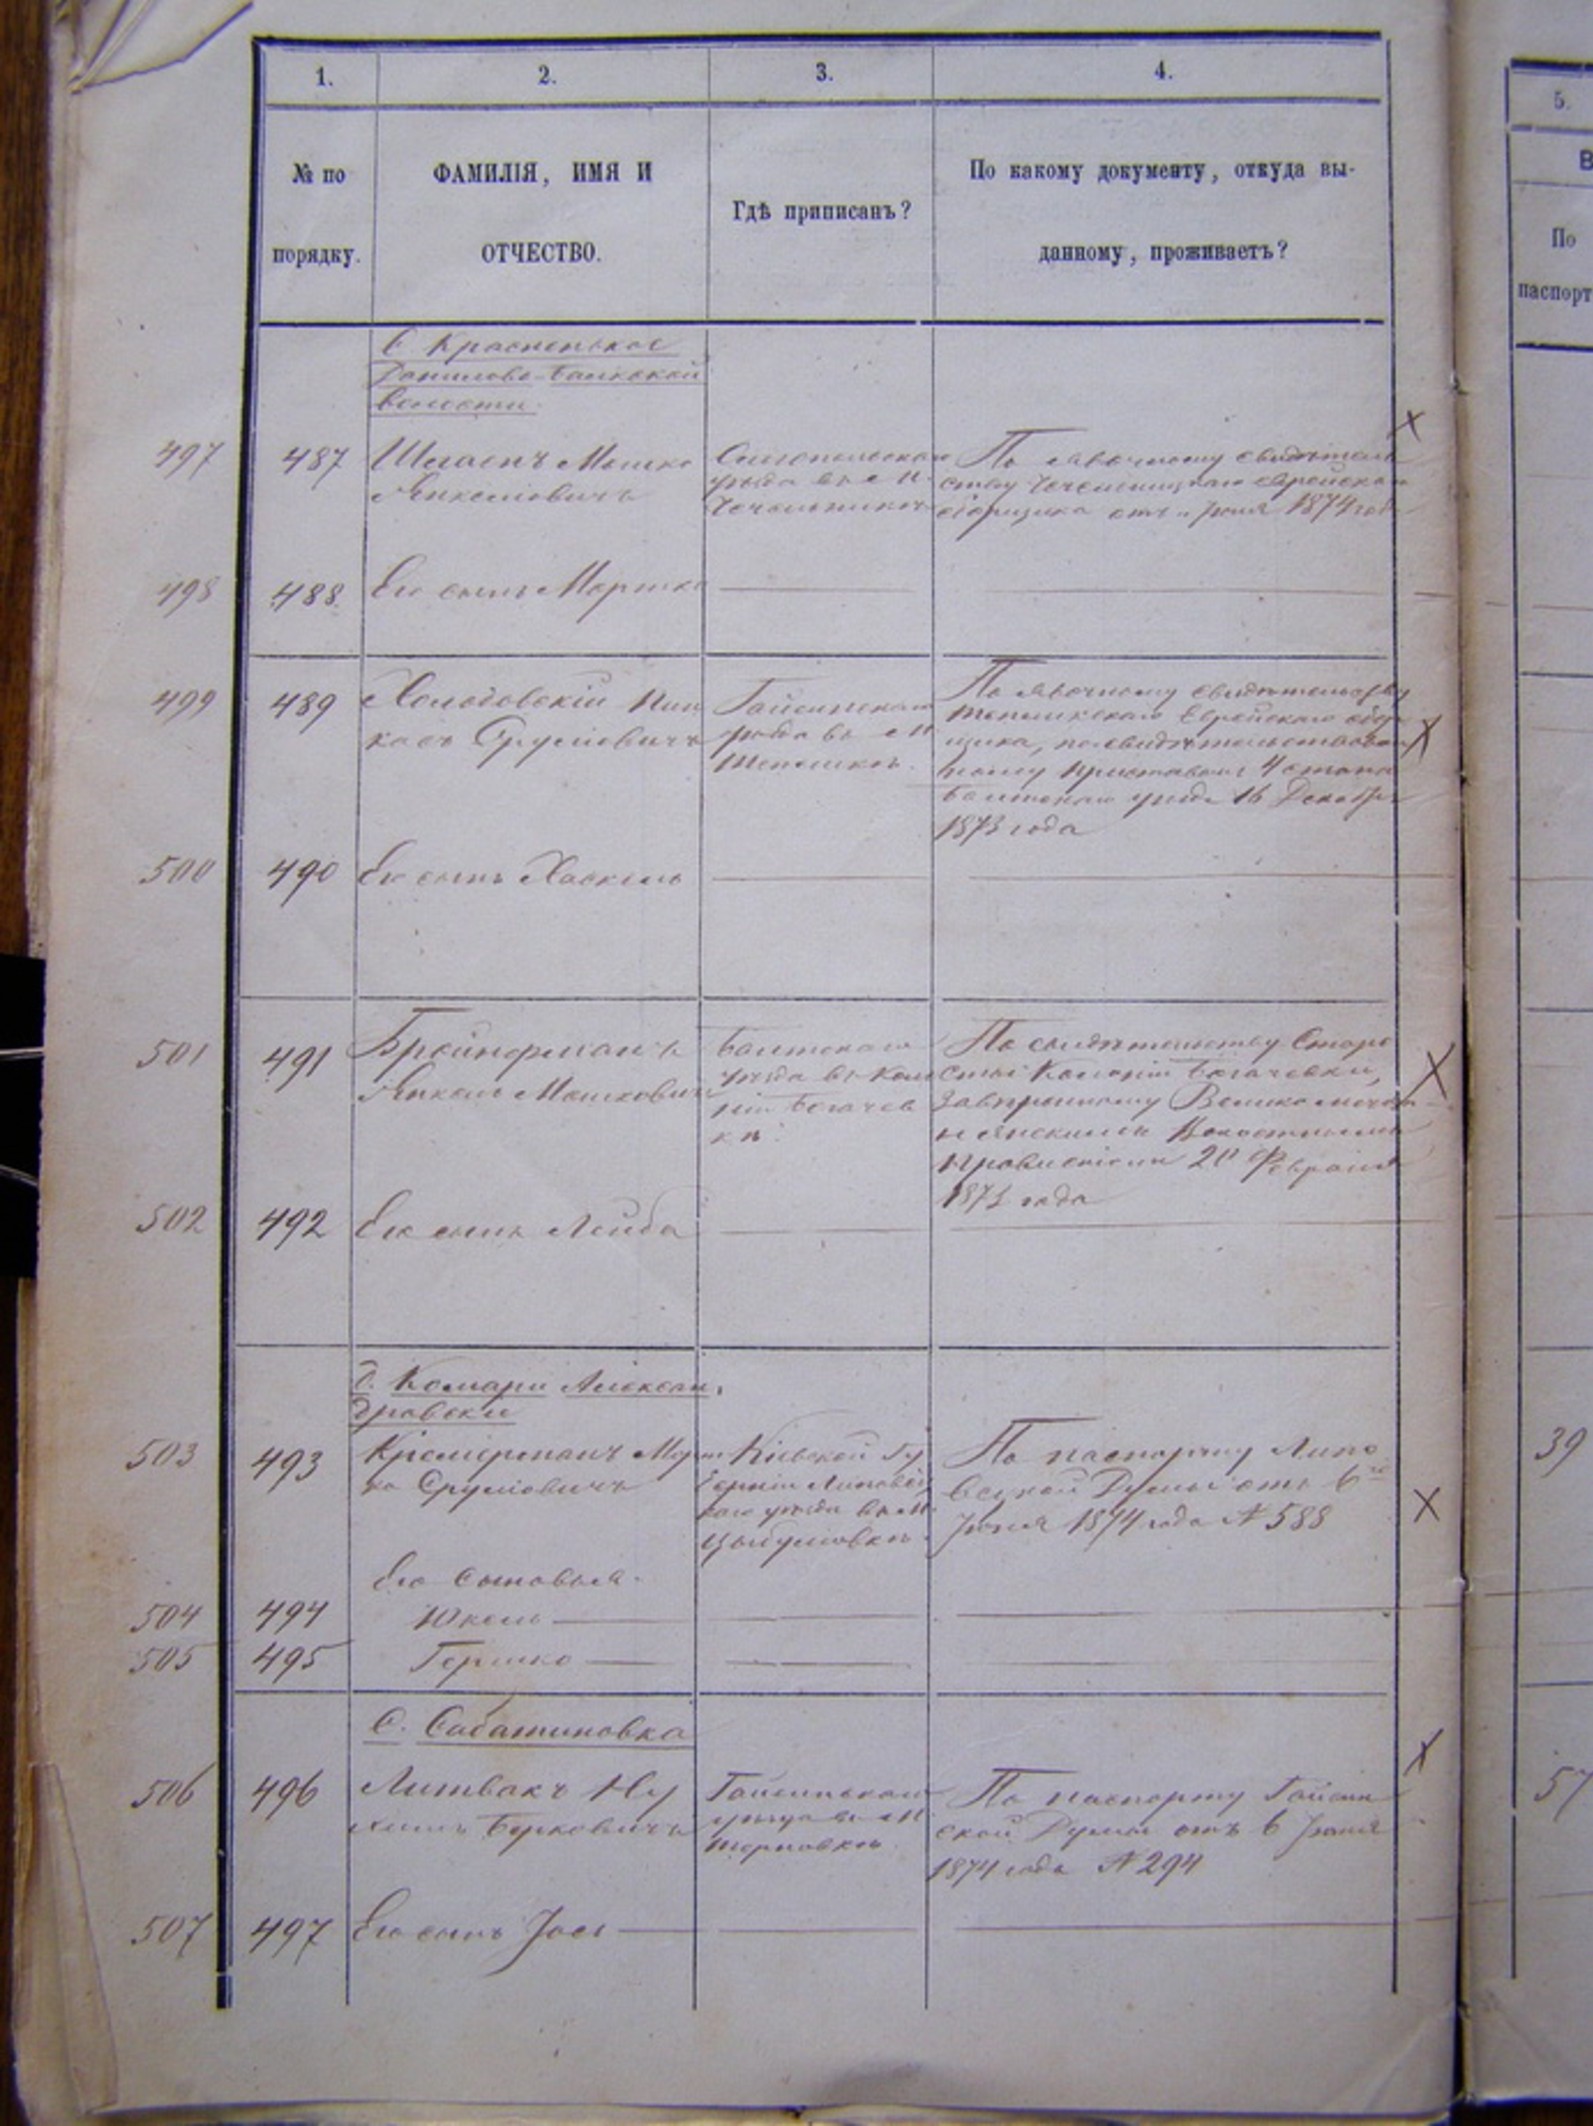 1.
2.
3.
4.
5.
№ по
порядку.
ФАМИЛІЯ, ИМЯ И
ОТЧЕСТВО.
Гдѣ приписанъ?
По какому документу, откуда вы-
данному, проживаетъ?
По
паспорт
С. Красненькое
Данилово-Балковской
волости.
497
487
Мошко
Янкелювичъ
уѣзда въ м.
Чечельникѣ
По явочному свидѣтель
ству еврейскаго
сборщика отъ Іюня 1874 года
498
488.
Его сынъ Мортко
499
489
Холодовскій Пин
касъ Сруліовичъ
Гайсинскаго
уѣзда въ м.
Тепликѣ.
По явочному свидѣтельству
Тепликскаго Еврейскаго сбор
щика, засвидѣтельствован
ному Приставомъ 4 стана
Балтскаго уѣзда 16 Декабря
1873 года
500
490
Его сынъ Хаскель
501
491
Янкель Мошковичъ
Балтскаго
уѣзда въ Коло
ніи Богачев
кѣ.
По свидѣтельству Старо
сты Колоніи Богачевки,
завѣренному
Волостнымъ
Правленіемъ 20 Февраля
года
502
492
Его сынъ Лейба
д. Комари Алексан.
дровски
503
493
Морт
ко Сруліовичъ
Кіевской Гу
берніи Липовец
каго уѣзда въ м.
Цыбулювкѣ.
По паспорту Липо
вецкой Думы отъ 6го
Іюня 1874 года № 588
Его сыновья.
504
494
Юкель
505
495
Гершко
39
С. Сабатиновка
506
496
Литвакъ Ну
химъ Берковичъ
Гайсинскаго
уѣзда въ м.
Терновкѣ
По паспорту Гайсин
ской Думы отъ 6 Іюня
1874 года № 294
57
507
497
Его сынъ Іось